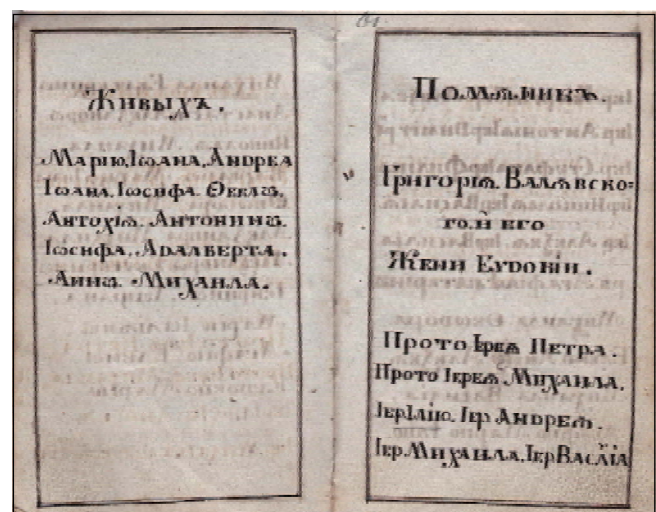 61.
Живыхъ.
Марію, Іѡана, Андреа
Іѡана. Іѡсифа. Ѳеклѡ.
Антохіѧ. Антонинѡ.
Іѡсифа. Адалберта.
Аннѡ. Михаила.
Помѧникъ
Григоріѧ. Валѧвско=
го. и его
Жени Еудокіи.
Прото Іереѧ Петра.
Прото Іереѧ. Михаила.
Іер Ілію. Іер Андреѧ.
Іер. Михаила, Іер Василіа